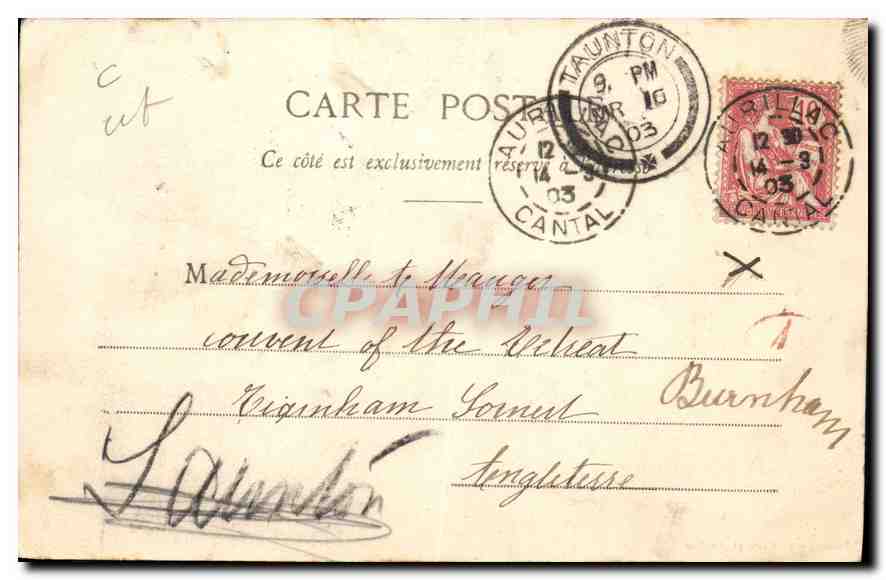 CARTE POSTALE
Ce côté est exclusivement réservé à
TAUNTON
9. PM
MR 16
03
AURILLAC
12
14 -3
03
CANTAL
AURILLAC
12 30
14 -3
03
CANTAL
Mademoiselle
couvent of the Retreat
Burnham
Angleterre
Taunton
CPAPHIL